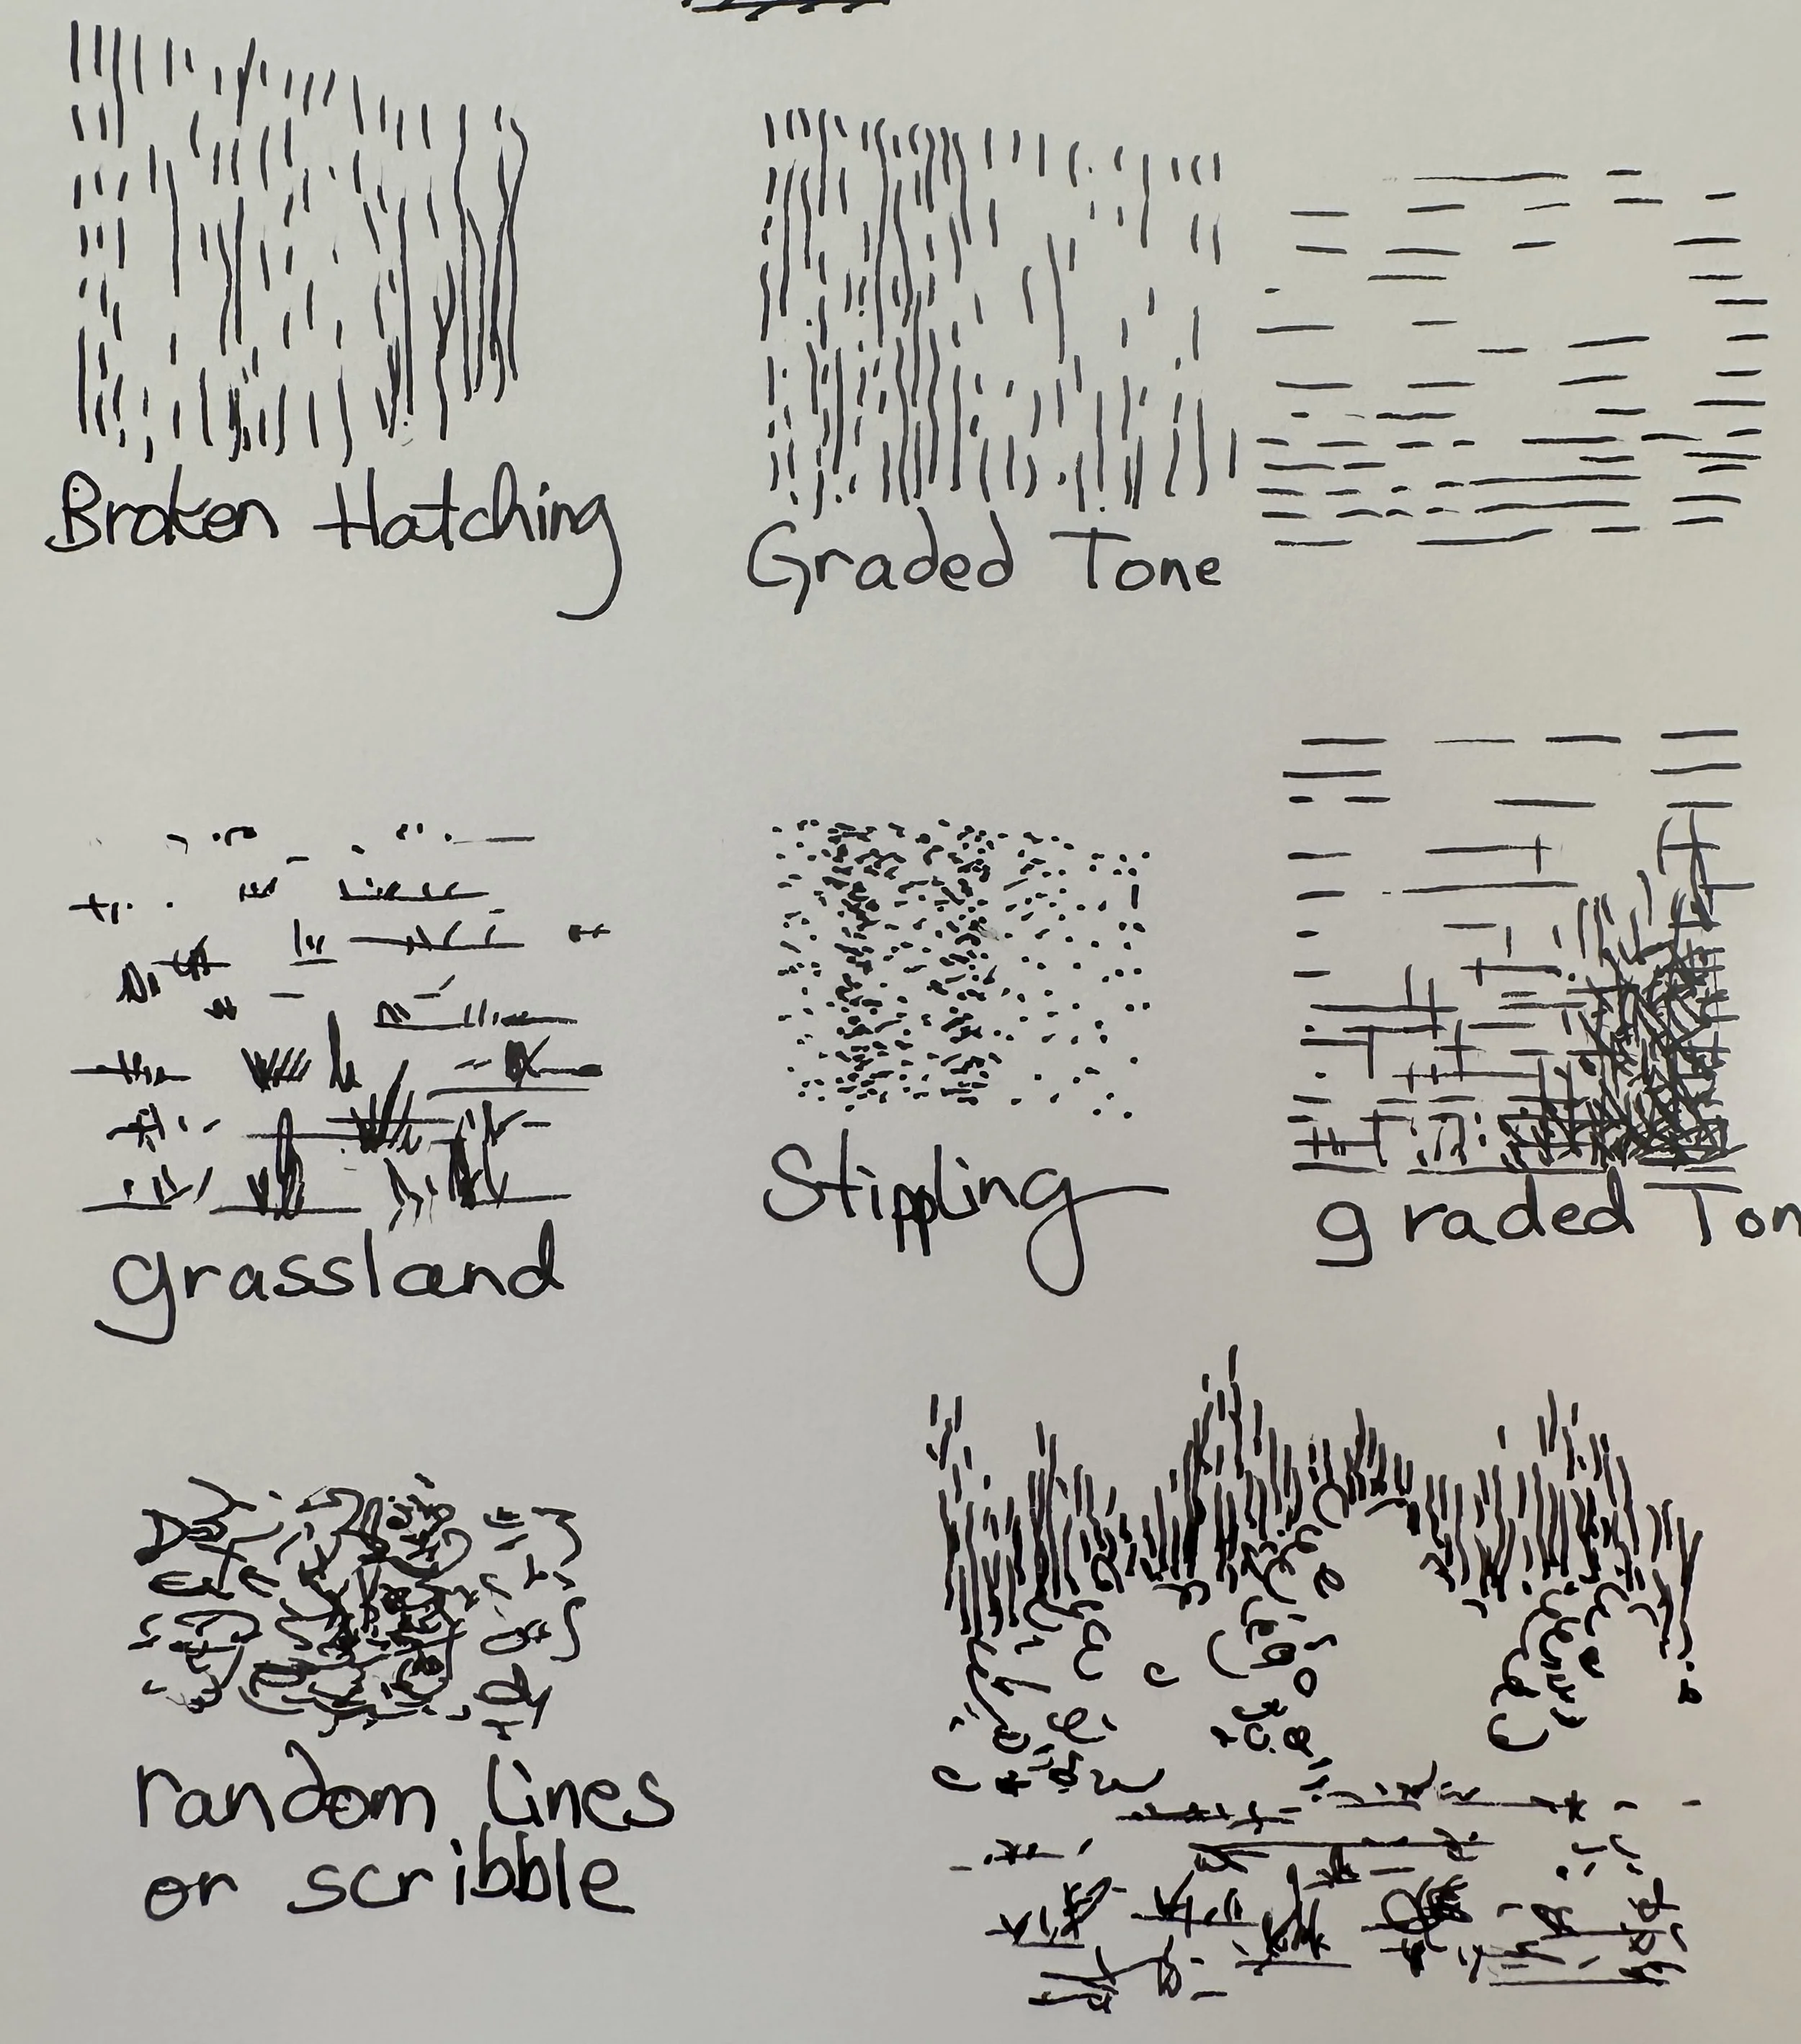 Broken Hatching
Graded Tone
grassland
Stippling
graded Ton
random lines
or scribble